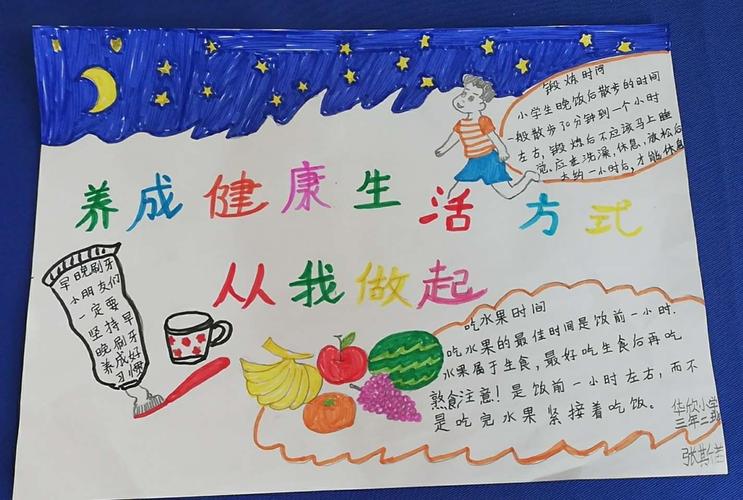 养成健康生活方式
从我做起
锻炼时间
小学生晚饭后散步的时间
一般散步30分钟到一个小时
左右,锻炼后不应该马上睡
觉.应查洗澡,休息,放松后
大约一小时后,才能休息
早晚刷牙
小朋友们
一定要
坚持早
晚刷牙
养成好
习惯
吃水果时间
吃水果的最佳时间是饭前一小时.
水果属于生食,最好吃生食后再吃
熟食注意!是饭前一小时左右,而不
是吃完水果紧接着吃饭。
华欣小学
三年二班